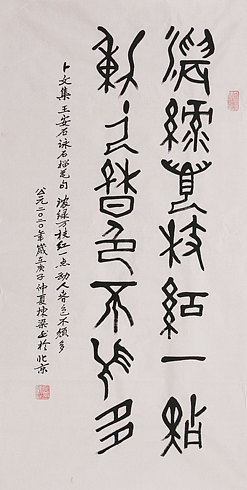 濃綠萬枝紅一點
動人春色不須多
卜文集王安石咏石榴花句 浓绿万枝红一点 动人春色不须多
公元二〇二〇年歲在庚子仲夏於北京